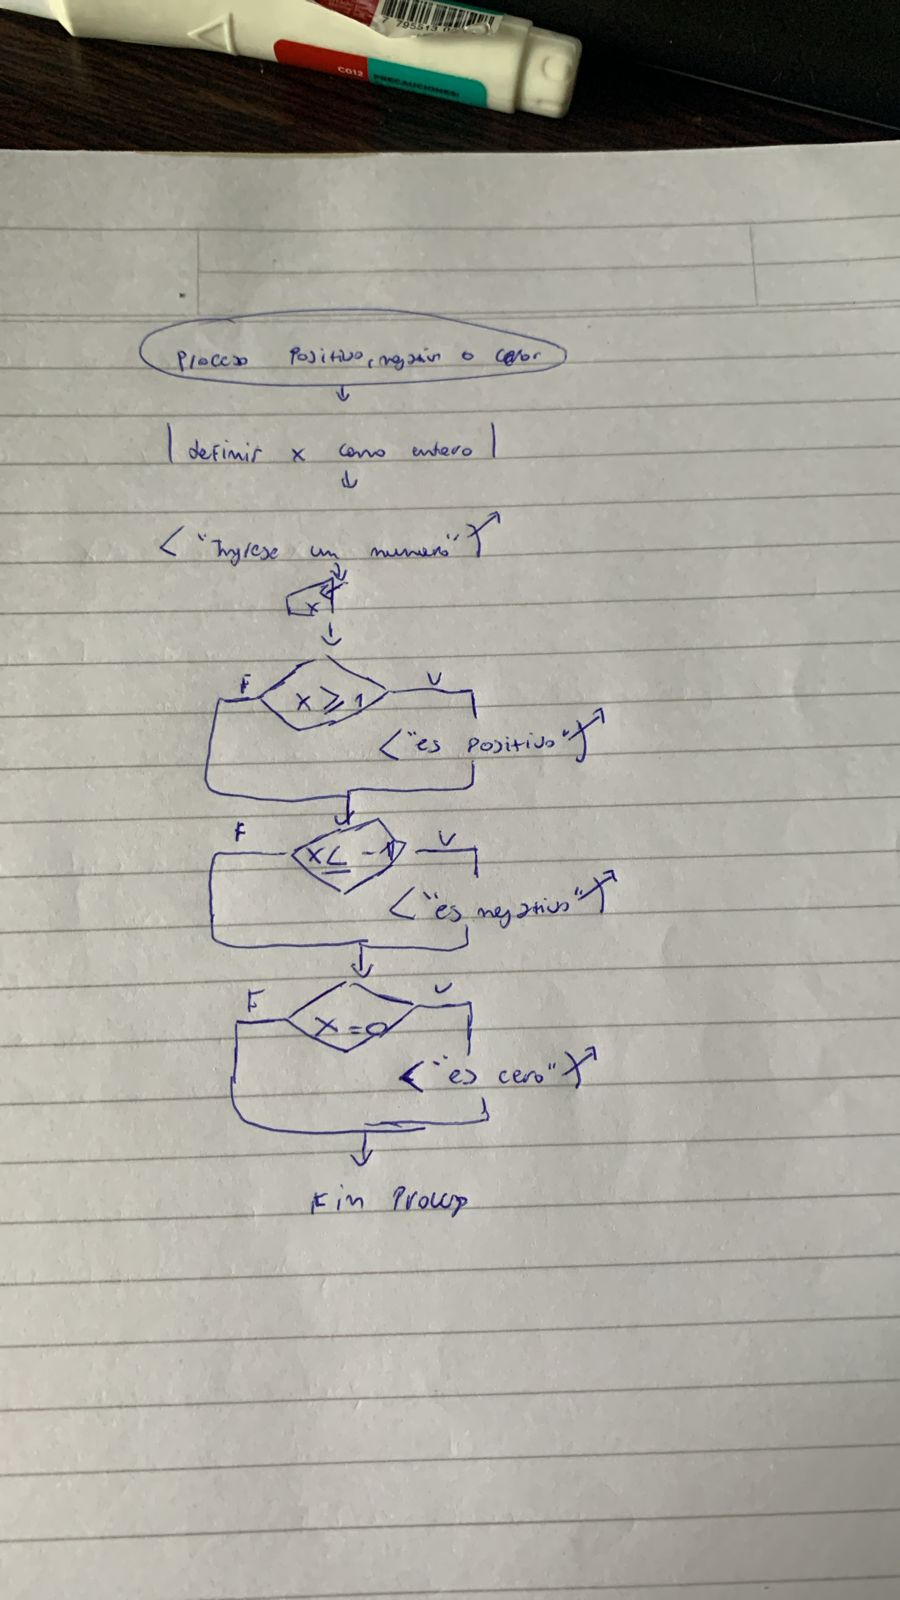 7 795513 0
C012
PRECAUCIONES:
Proceso Positivo, negativo o
definir x como entero
"Ingrese un numero"
x
F x ≥ 1 V
"es positivo"
F x ≤ -1 V
"es negativo"
F x = 0 V
"es cero"
Fin Proceso